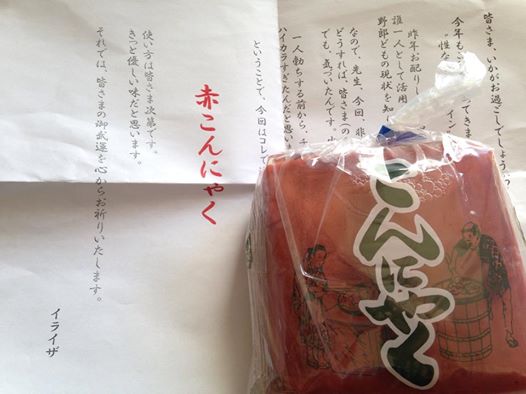 皆さま、いかがお過ごしでしょうか
今年も
"性な
昨年お配りし
誰一人として活用
野郎どもの現状を知り
なので、先生、今回、非
どうすれば、皆さま(の
でも、気づいたんです。
一人勃ちする前から、チ
ハイカラすぎたんだと思いま
ということで、今回はコレで
赤こんにゃく
使い方は皆さま次第です。
きっと優しい味だと思います。
それでは、皆さまの御武運を心からお祈りいたします。
イライザ
こんにゃく